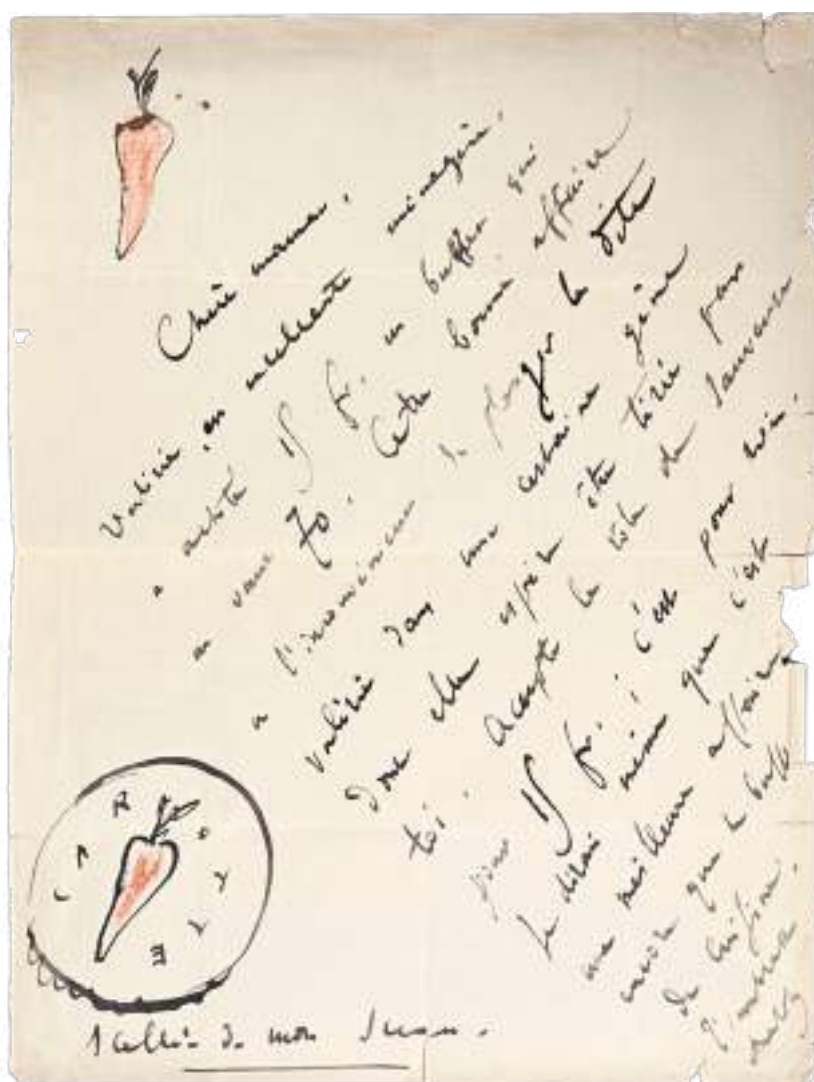 Chère maman,
Valérie, en excellente ménagère,
a acheté 15 fr. un buffet qui
en vaut 70. Cette bonne affaire
a l'inconvénient de plonger la dite
Valérie dans une certaine gêne
dont elle espère être tirée par
toi. Accepte le rôle de sauveur
pour 15 fr. ; c'est pour rien.
Je dirai même que c'est
une meilleure affaire
encore que le buffet
de
CAROTTE
Scellée de mon Sceau.